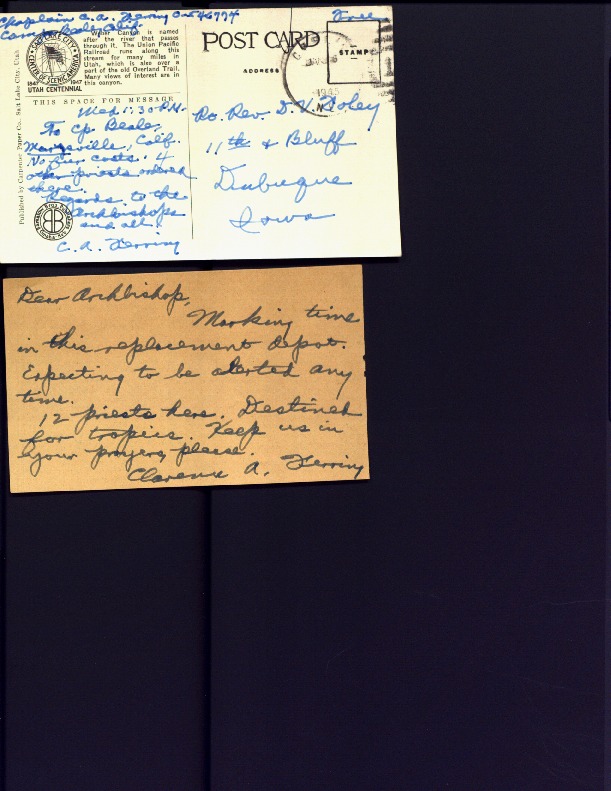 Chaplain C.A. Ferring O-546774
Camp Beale, Calif.
Free
SALT LAKE CITY
CENTER OF SCENIC AMERICA
1847 1947
UTAH CENTENNIAL
Weber Canyon is named
after the river that passes
through it. The Union Pacific
Railroad runs along this
stream for many miles in
Utah, which is also over a
part of the old Overland Trail.
Many views of interest are in
this canyon.
POST CARD
ADDRESS
STAMP
1945
THIS SPACE FOR MESSAGE
Published by Carpenter Paper Co. Salt Lake City, Utah
Wed. 1:30 P.M.
To Cp. Beale,
Marysville, Calif.
No fur coats. 4
other priests ordered
there.
Regards to the
Archbishops
and all.
C.A. Ferring
Rt. Rev. D.V. Foley
11th & Bluff
Dubuque
Iowa
Dear Archbishop,
Marking time
in this replacement depot.
Expecting to be alerted any
time.
12 priests here. Destined
for tropics. Keep us in
your prayers, please.
Clarence A. Ferring